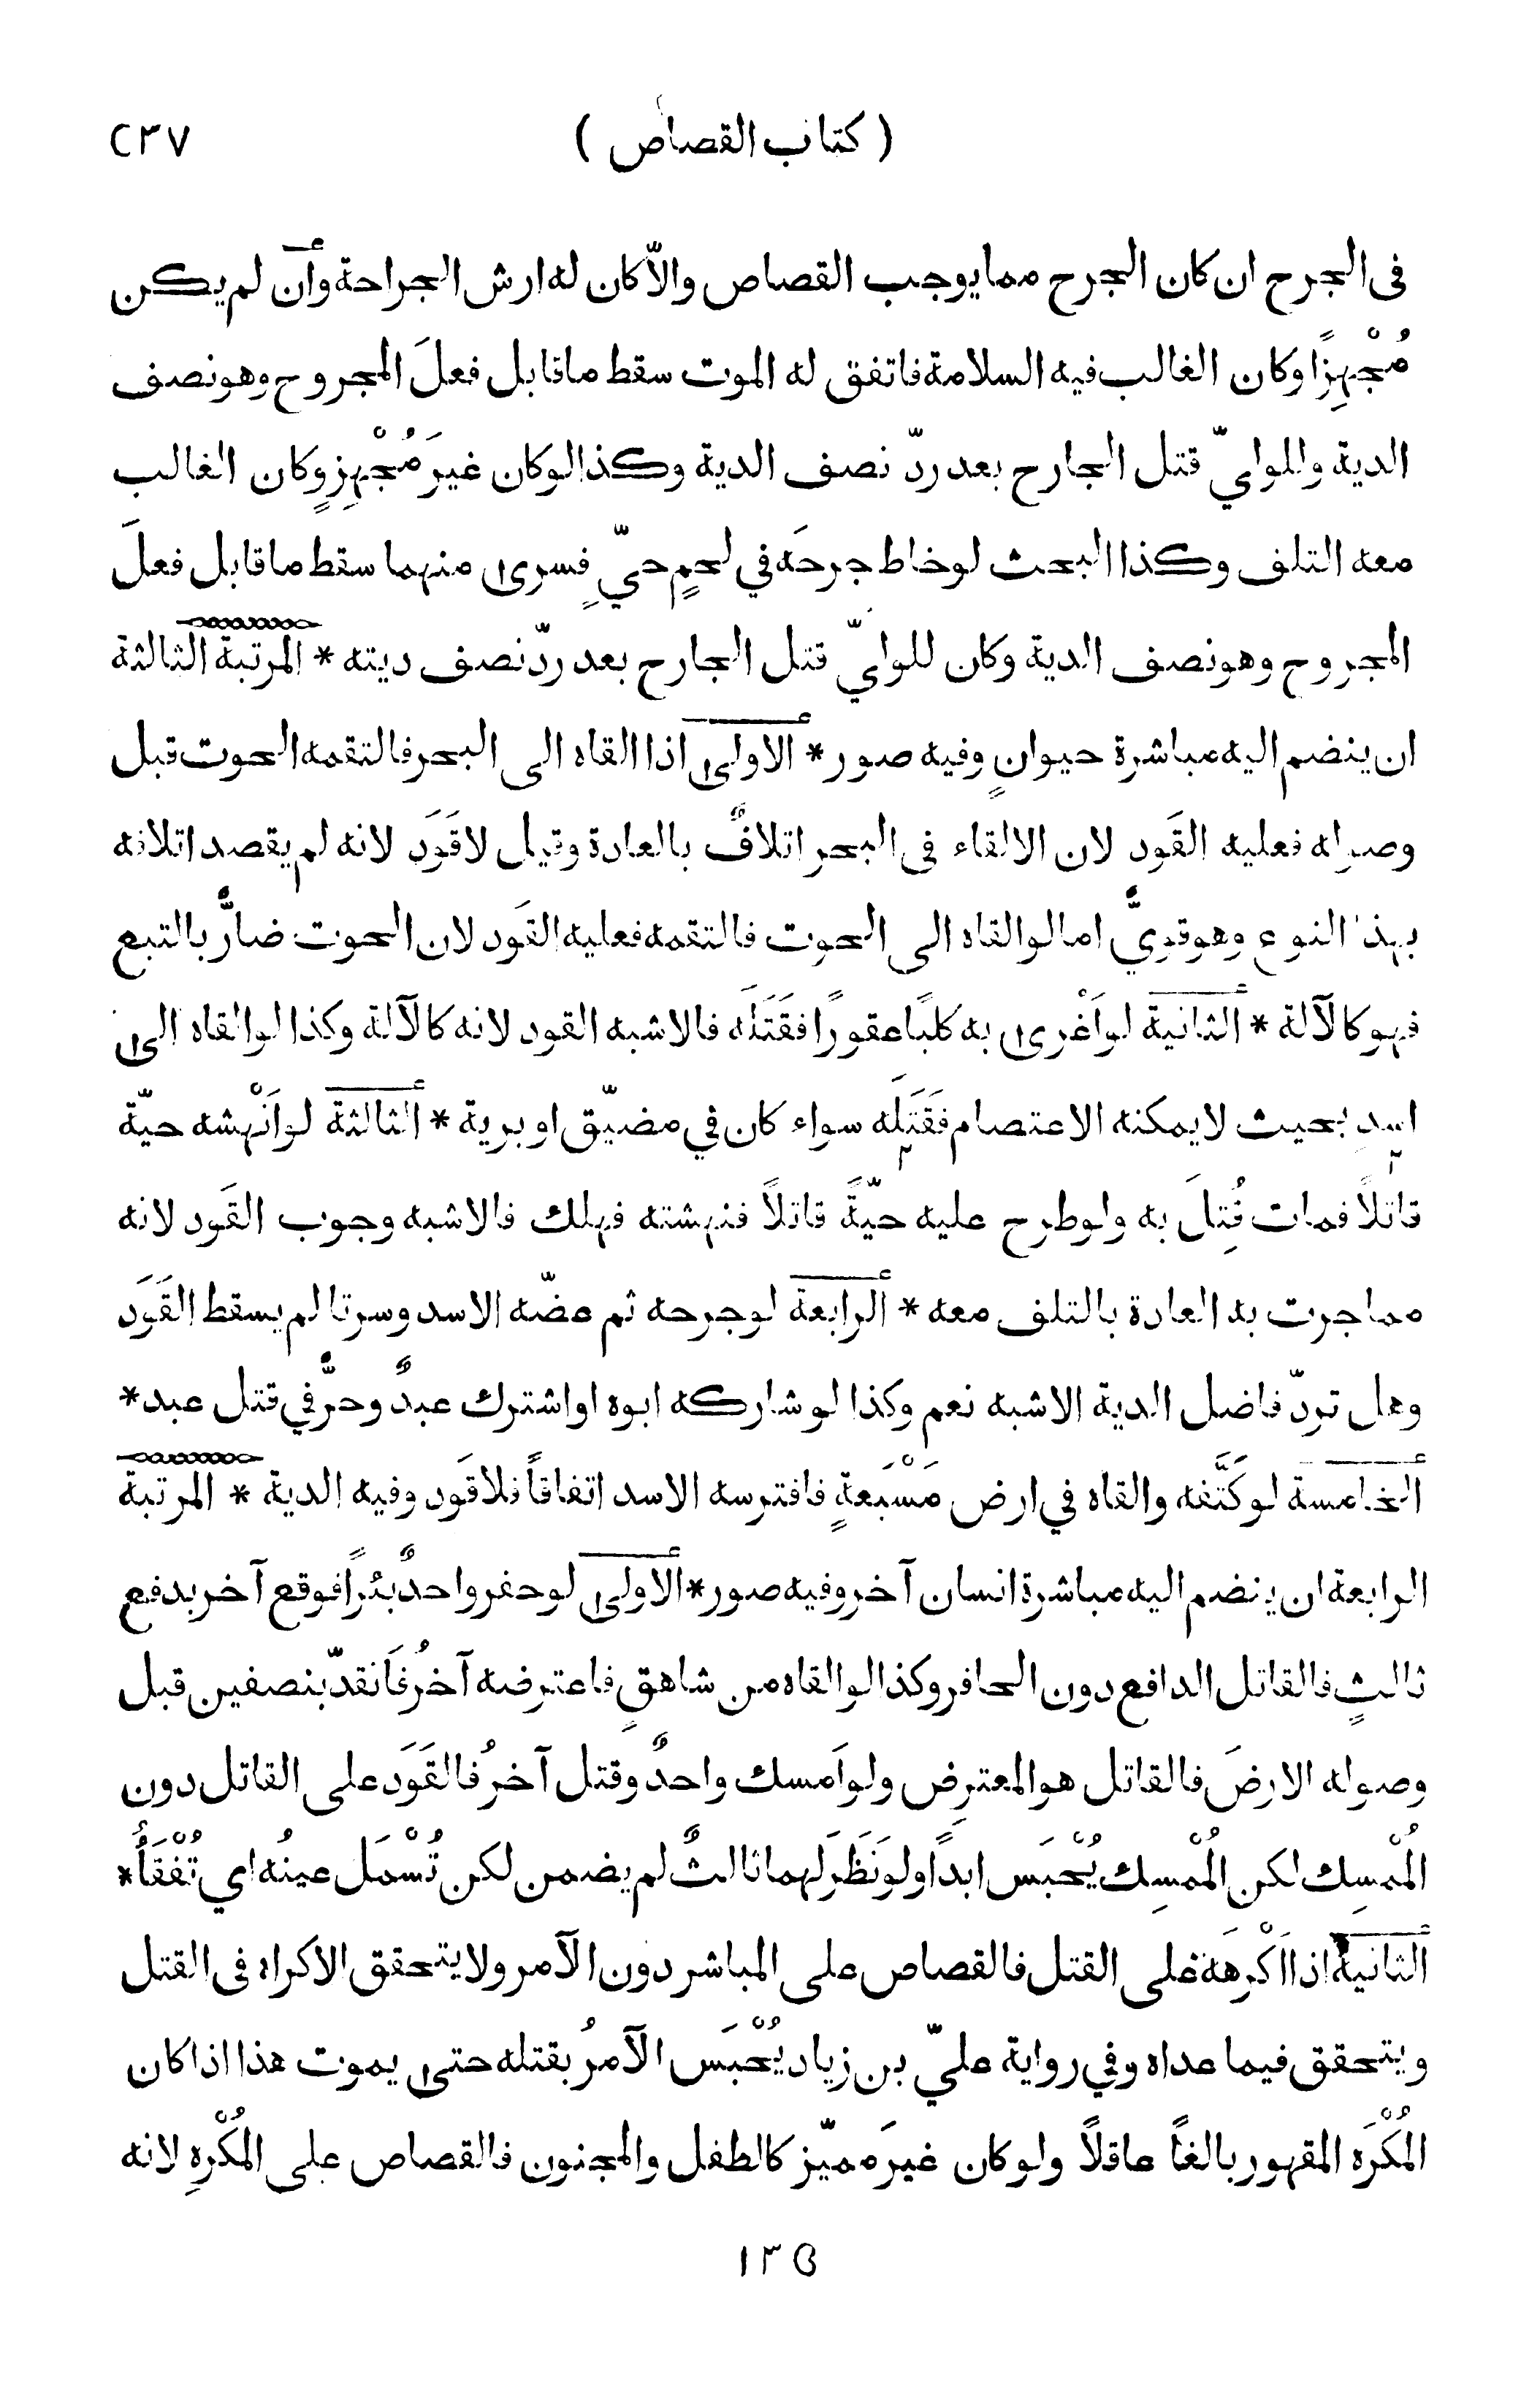 ( كتاب القصاص ) ٢٣٧
فى الجرح ان كان الجرح مما يوجب القصاص والاّ كان له ارش الجراحة وان لم يكن
مُجْهِزًا وكان الغالب فيه السلامة فاتفق له الموت سقط ما قابل فعلَ المجروح وهو نصف
الدية وللوليّ قتل الجارح بعد ردّ نصف الدية وكذا لو كان غيرَ مُجْهِزٍ وكان الغالب
معه التلف وكذا البحث لو خاط جرحَه في لحمٍ حيٍّ فسرى منهما سقط ما قابل فعلَ
المجروح وهو نصف الدية وكان للوليّ قتل الجارح بعد ردّ نصف ديته * المرتبة الثالثة
ان ينضم اليه مباشرة حيوانٍ وفيه صور * الاولى اذا القاه الى البحر فالتقمه الحوت قبل
وصوله فعليه القَود لان الالقاء فى البحر اتلافٌ بالعادة وقيل لا قَوَد لانه لم يقصد اتلافه
بهذا النوع وهو قويٌّ اما لو القاه الى الحوت فالتقمه فعليه القَود لان الحوت ضارٌّ بالتبع
فهو كالآلة * الثانية لو اَغْرى به كلبًا عقورًا فقَتَلَه فالاشبه القود لانه كالآلة وكذا لو القاه الى
اسدٍ بحيث لا يمكنه الاعتصام فقَتَلَه سواء كان في مضيّق او برية * الثالثة لو اَنْهشه حيّة
قاتلاً فمات قُتِلَ به ولو طرح عليه حيّةً قاتلاً فنهشته فهلك فالاشبه وجوب القَود لانه
مما جرت به العادة بالتلف معه * الرابعة لو جرحه ثم عضّه الاسد وسرتا لم يسقط القَوَد
وهل تردّ فاضل الدية الاشبه نعم وكذا لو شاركه ابوه او اشترك عبدٌ وحرٌّ في قتل عبد *
الخامسة لو كَتَّفه والقاه في ارض مَسْبَعةٍ فافترسه الاسد اتفاقاً فلا قَود وفيه الدية * المرتبة
الرابعة ان ينضم اليه مباشرة انسان آخر وفيه صور * الاولى لو حفر واحدٌ بئراً فوقع آخر بدفع
ثالثٍ فالقاتل الدافع دون الحافر وكذا لو القاه من شاهقٍ فاعترضه آخرُ فَانقدّ بنصفين قبل
وصوله الارضَ فالقاتل هو المعترِض ولو اَمسك واحدٌ وقتل آخرُ فالقَوَد على القاتل دون
المُمْسِك لكن المُمْسِك يُحْبَس ابداً ولو نَظَرَ لهما ثالثٌ لم يضمن لكن تُسْمَل عينُه اي تُفْقَأُ *
الثانية اذا اَكْرهَه على القتل فالقصاص على المباشر دون الآمر ولا يتحقق الاكراه فى القتل
ويتحقق فيما عداه وفي رواية عليّ بن زياد يُحْبَس الآمرُ بقتله حتى يموت هذا اذا كان
المُكْرَه المقهور بالغاً عاقلاً ولو كان غيرَ مميّز كالطفل والمجنون فالقصاص على المُكْرِه لانه